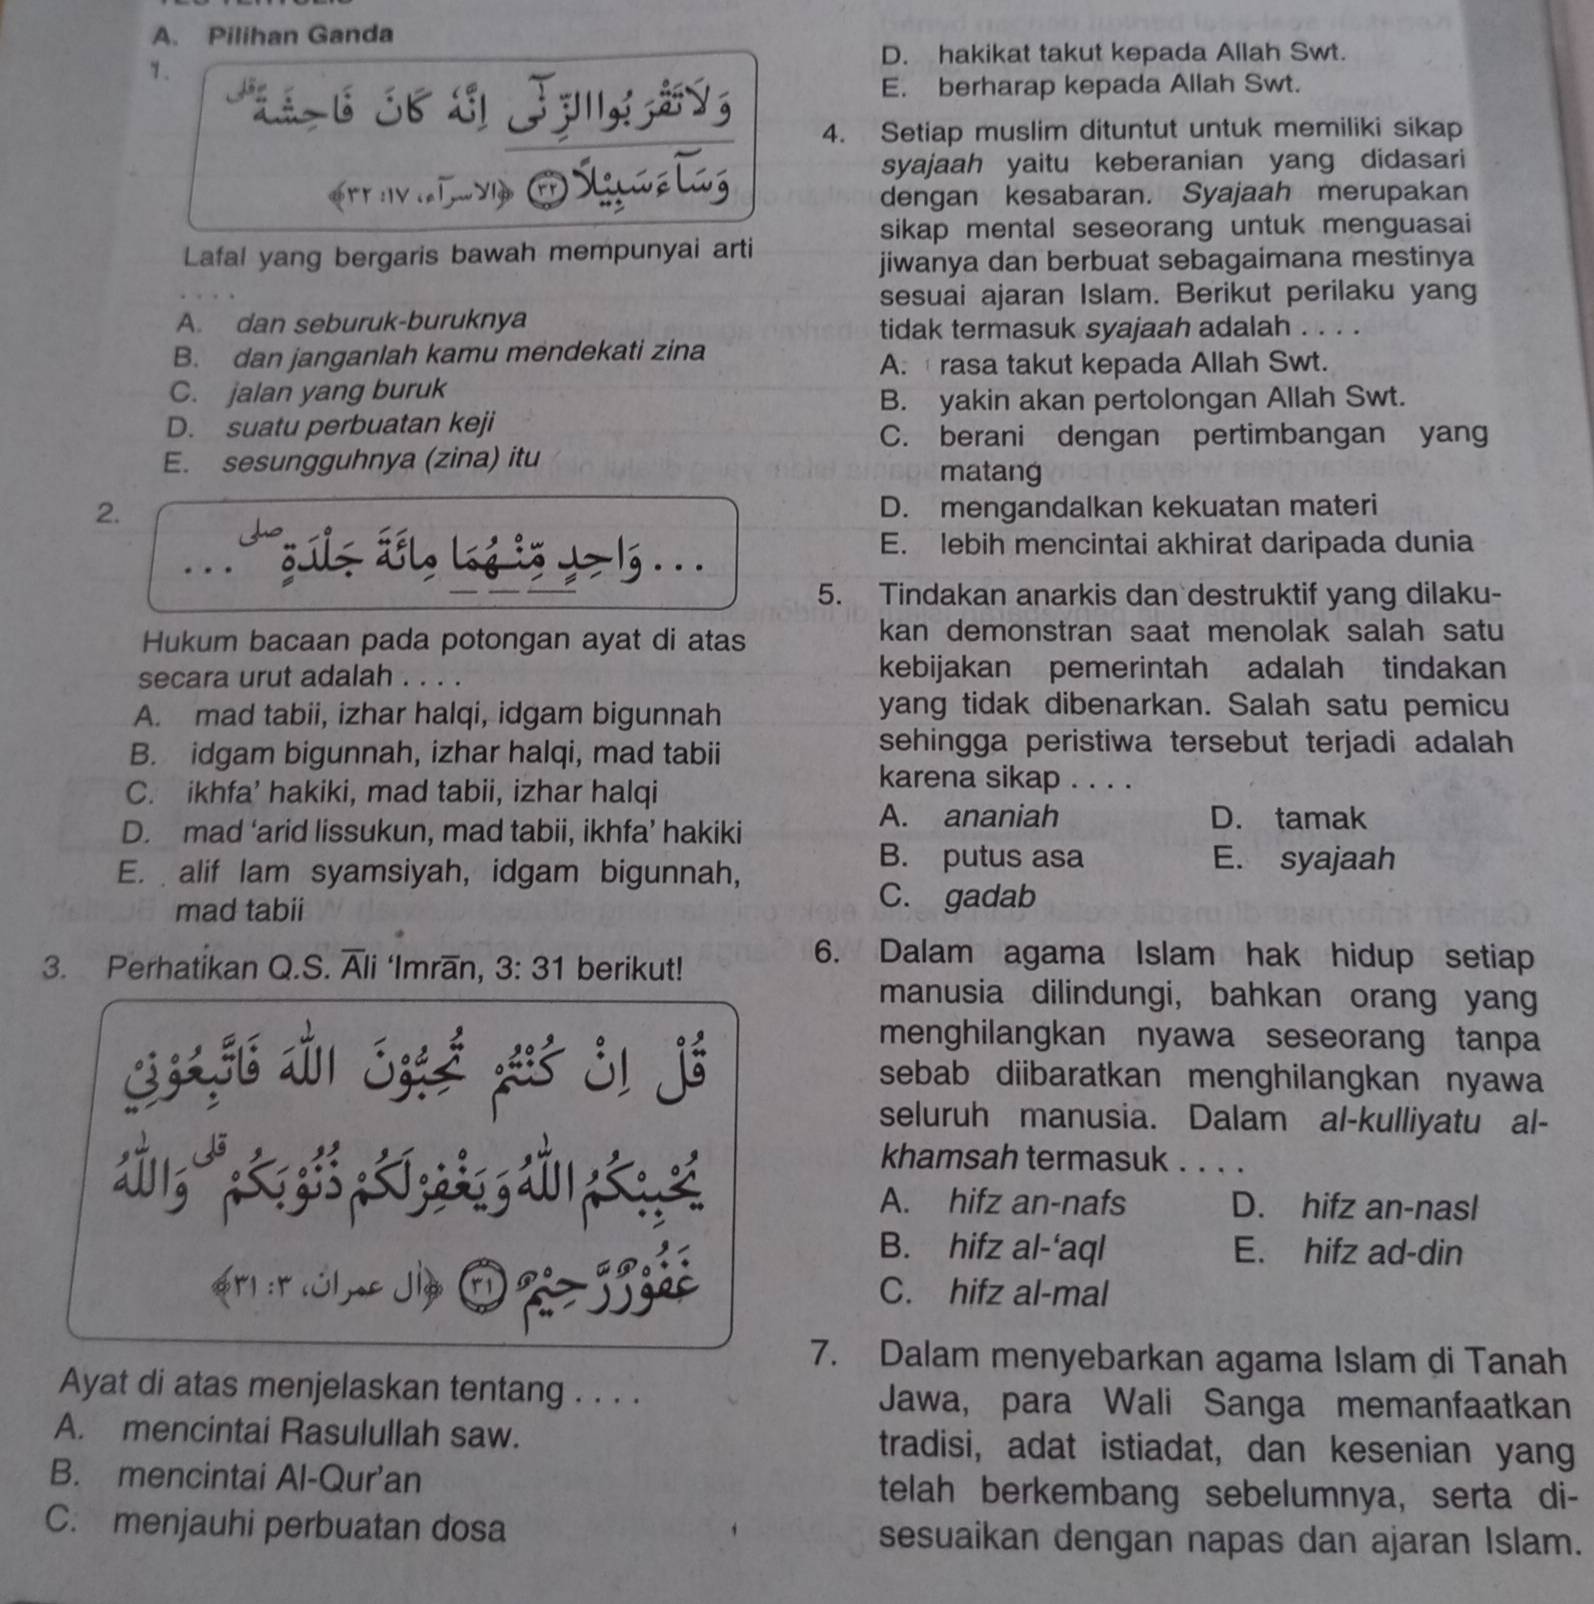 A. Pilihan Ganda
1.
وَلَا تَقْرَبُوا الزِّنٰٓى اِنَّهٗ كَانَ فَاحِشَةًۗ
وَسَاۤءَ سَبِيْلًا ۝٣٢ ﴿الاسرآء، ١٧: ٣٢﴾
Lafal yang bergaris bawah mempunyai arti
. . . .
A. dan seburuk-buruknya
B. dan janganlah kamu mendekati zina
C. jalan yang buruk
D. suatu perbuatan keji
E. sesungguhnya (zina) itu
2.
. . . وَاحِدٍ مِّنْهُمَا مِائَةَ جَلْدَةٍۖ . . .
Hukum bacaan pada potongan ayat di atas
secara urut adalah . . . .
A. mad tabii, izhar halqi, idgam bigunnah
B. idgam bigunnah, izhar halqi, mad tabii
C. ikhfa’ hakiki, mad tabii, izhar halqi
D. mad ‘arid lissukun, mad tabii, ikhfa’ hakiki
E. alif lam syamsiyah, idgam bigunnah,
mad tabii
3. Perhatikan Q.S. Āli ‘Imrān, 3: 31 berikut!
قُلْ اِنْ كُنْتُمْ تُحِبُّوْنَ اللّٰهَ فَاتَّبِعُوْنِيْ
يُحْبِبْكُمُ اللّٰهُ وَيَغْفِرْ لَكُمْ ذُنُوْبَكُمْۗ وَاللّٰهُ
غَفُوْرٌ رَّحِيْمٌ ۝٣١ ﴿اٰل عمران، ٣: ٣١﴾
Ayat di atas menjelaskan tentang . . . .
A. mencintai Rasulullah saw.
B. mencintai Al-Qur’an
C. menjauhi perbuatan dosa
D. hakikat takut kepada Allah Swt.
E. berharap kepada Allah Swt.
4. Setiap muslim dituntut untuk memiliki sikap
syajaah yaitu keberanian yang didasari
dengan kesabaran. Syajaah merupakan
sikap mental seseorang untuk menguasai
jiwanya dan berbuat sebagaimana mestinya
sesuai ajaran Islam. Berikut perilaku yang
tidak termasuk syajaah adalah . . . .
A. rasa takut kepada Allah Swt.
B. yakin akan pertolongan Allah Swt.
C. berani dengan pertimbangan yang
matang
D. mengandalkan kekuatan materi
E. lebih mencintai akhirat daripada dunia
5. Tindakan anarkis dan destruktif yang dilaku-
kan demonstran saat menolak salah satu
kebijakan pemerintah adalah tindakan
yang tidak dibenarkan. Salah satu pemicu
sehingga peristiwa tersebut terjadi adalah
karena sikap . . . .
A. ananiah D. tamak
B. putus asa E. syajaah
C. gadab
6. Dalam agama Islam hak hidup setiap
manusia dilindungi, bahkan orang yang
menghilangkan nyawa seseorang tanpa
sebab diibaratkan menghilangkan nyawa
seluruh manusia. Dalam al-kulliyatu al-
khamsah termasuk . . . .
A. hifz an-nafs D. hifz an-nasl
B. hifz al-‘aql E. hifz ad-din
C. hifz al-mal
7. Dalam menyebarkan agama Islam di Tanah
Jawa, para Wali Sanga memanfaatkan
tradisi, adat istiadat, dan kesenian yang
telah berkembang sebelumnya, serta di-
sesuaikan dengan napas dan ajaran Islam.